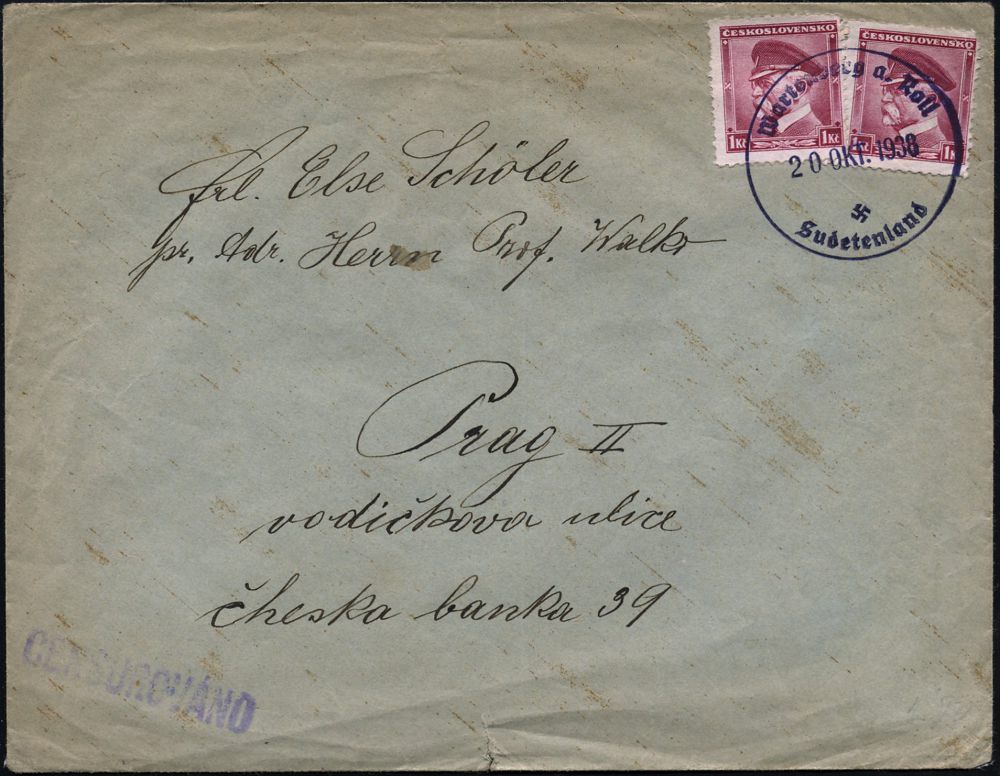 ČESKOSLOVENSKO ČESKOSLOVENSKO
1Kč 1Kč 1K 1K
Wartenberg a. Roll
20 OKT. 1938
Sudetenland
frl. Else Schöler
pr. Adr. Herrn Prof. Walko
Prag II
vodičkova ulice
čheska banka 39
CENSUROVÁNO